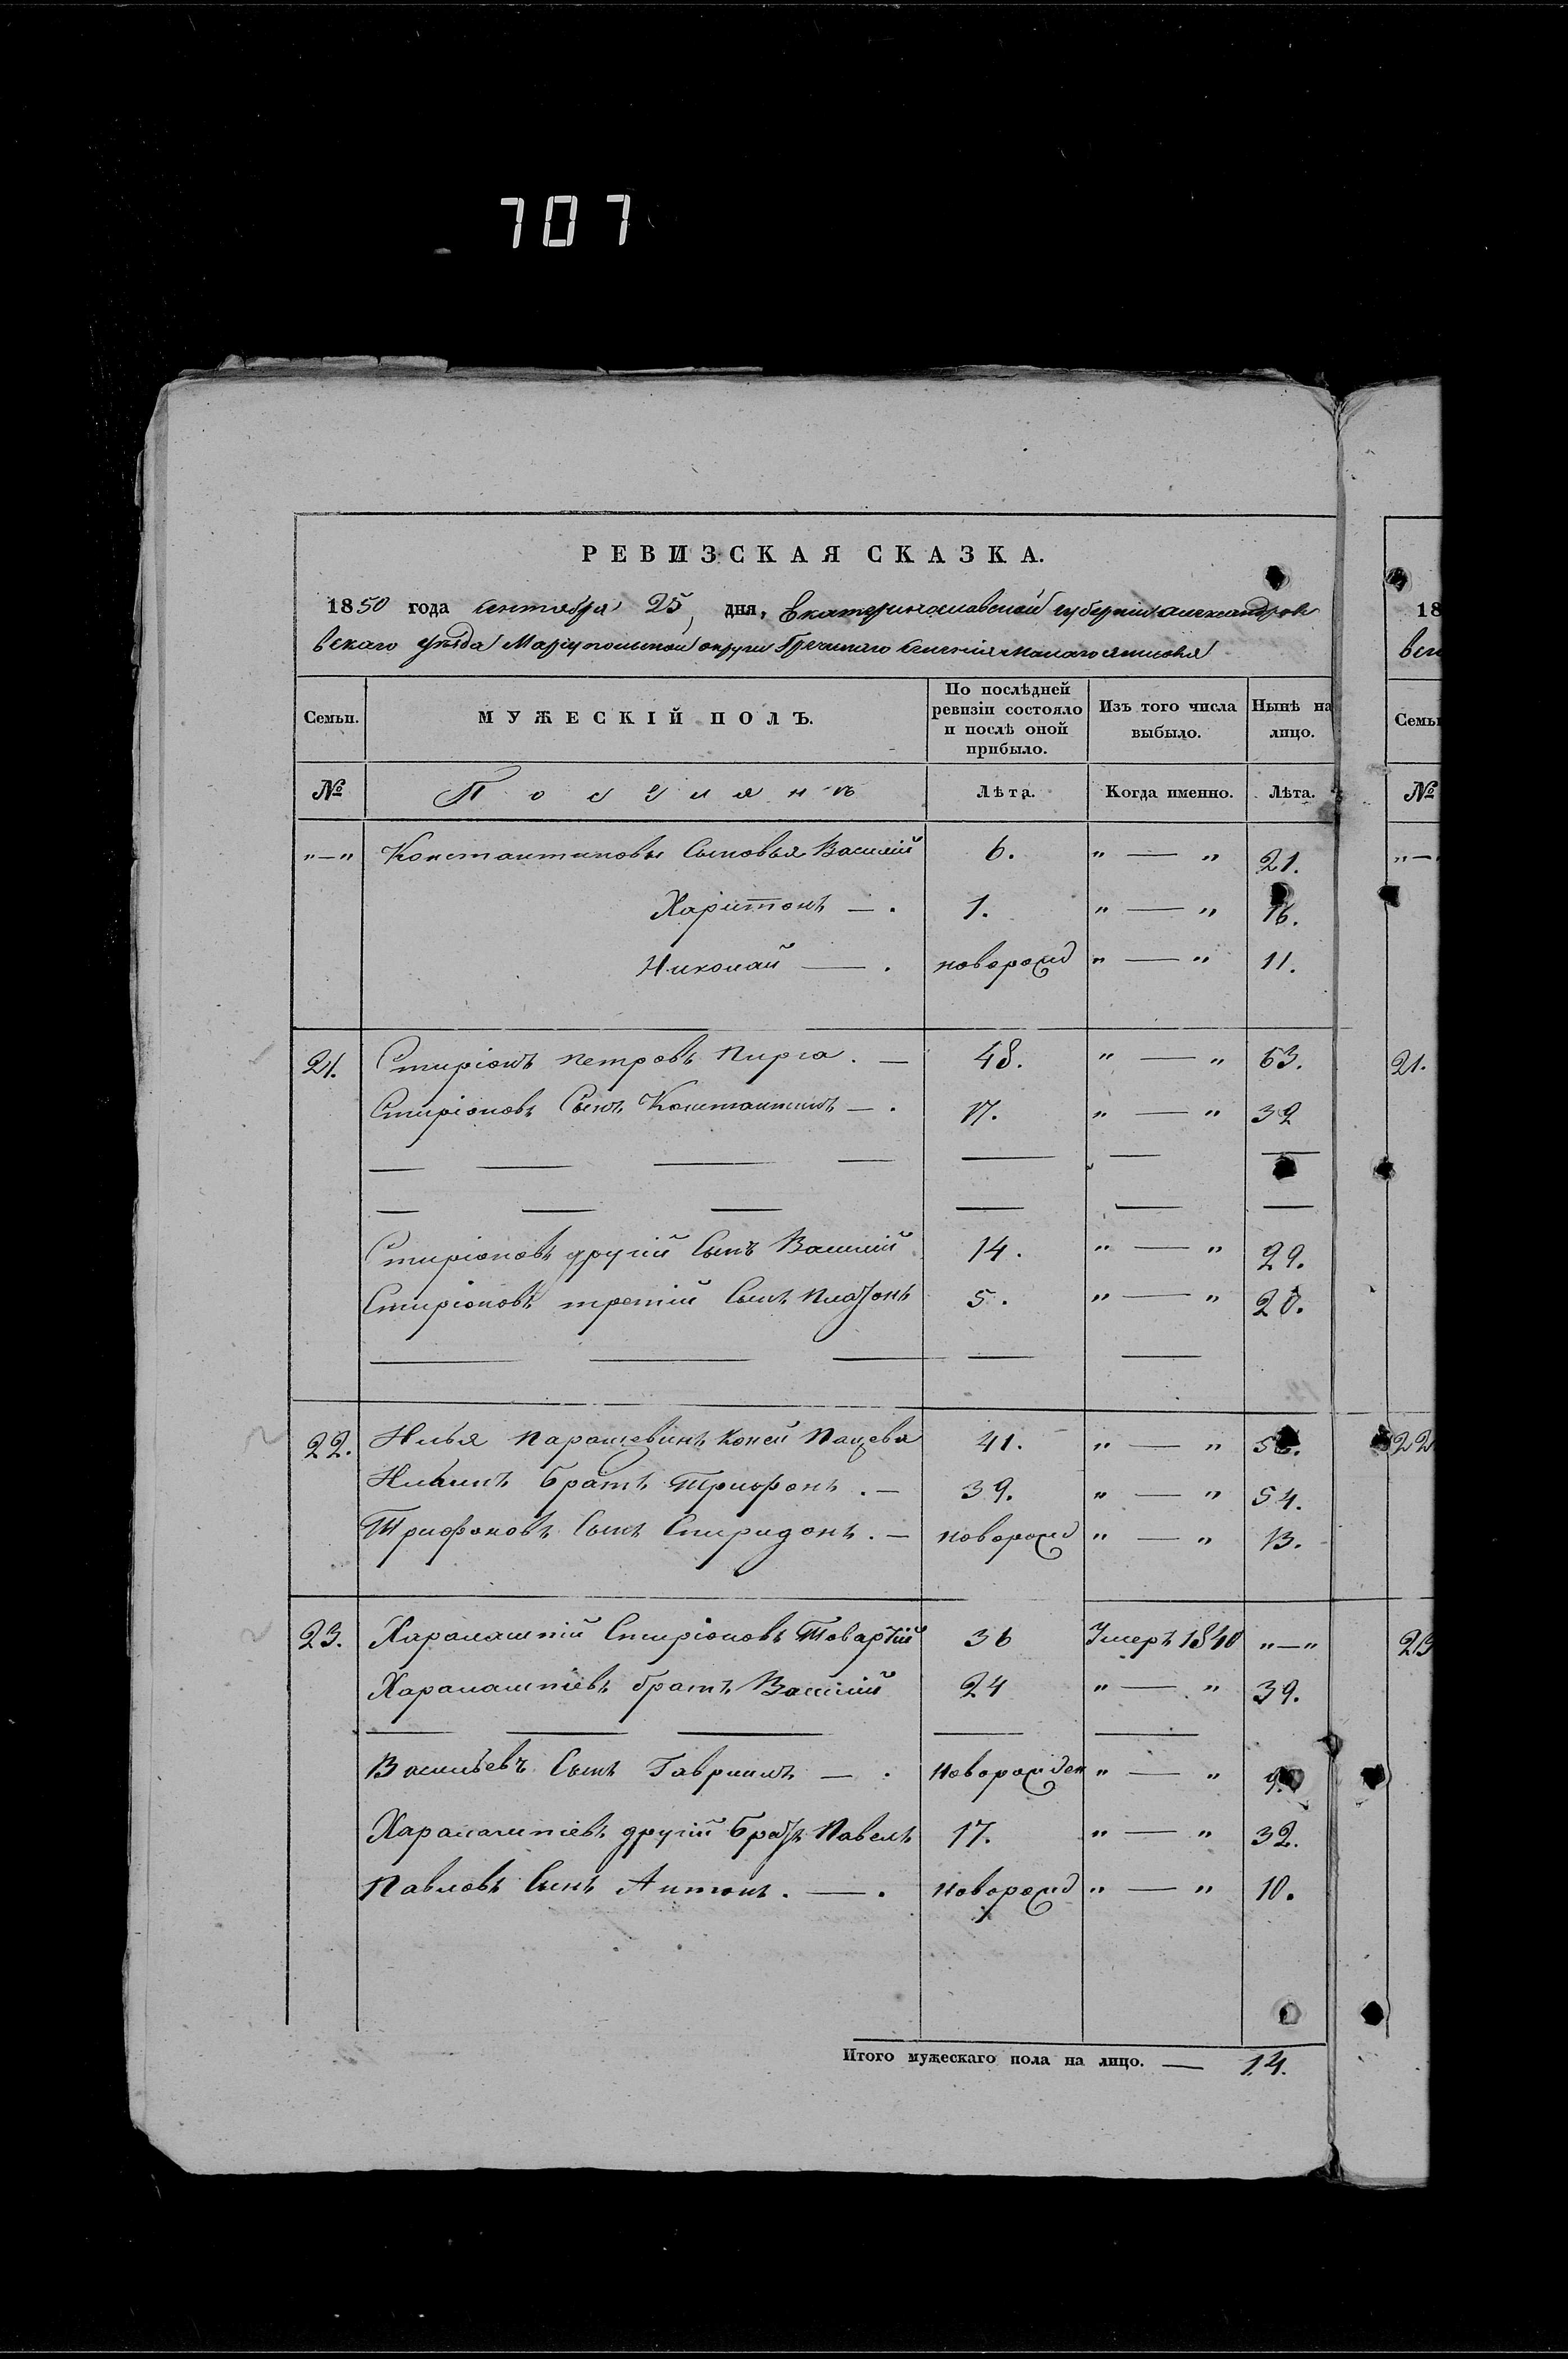 707
РЕВИЗСКАЯ СКАЗКА.
1850 года Сентября 25, дня, Екатеринославской губерніи Александров
вскаго уѣзда Маріупольской округи Греческаго Селенія Малаго Янисоля
18
вск
Семьи. МУЖЕСКІЙ ПОЛЪ. По послѣдней ревизіи состояло и послѣ оной прибыло. Изъ того числа выбыло. Нынѣ на лицо. Семьи
№ Поселянъ Лѣта. Когда именно. Лѣта. №
"—" Константиновы Сыновья Василій 6. " — " 21. "—
Харитонъ — . 1. " — " 16.
Николай — . новорожд " — " 11.
21. Спиріонъ Петровъ Пирга . — 48. " — " 63. 21.
Спиріоновъ Сынъ Константинъ — . 17. " — " 32
Спиріоновъ другій Сынъ Василій 14. " — " 29.
Спиріоновъ третій Сынъ Платонъ 5. " — " 20.
22. Илья Параскевинъ 41. " — " 56. 22
Ильинъ братъ Трифонъ . — 39. " — " 54.
Трифоновъ Сынъ Спиридонъ . — новорожд " — " 13.
23. Харалампій Спиріоновъ 36 Умеръ 1840 "—" 23
Харалампіевъ братъ Василій 24 " — " 39.
Васильевъ Сынъ Гавриилъ — . Новорожден " — " 9.
Харалампіевъ другій братъ Павелъ 17. " — " 32.
Павловъ Сынъ Антонъ . — . Новорожд " — " 10.
Итого мужескаго пола на лицо. — 14.